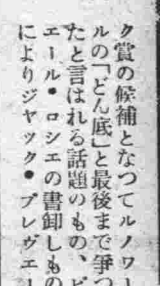 ク賞の候補となつてルノワー
ルの「どん底」と最後まで爭つ
たと言はれる話題のもの、ピ
エール・ロシエの書卸しもの
によりジャック・プレヴェー